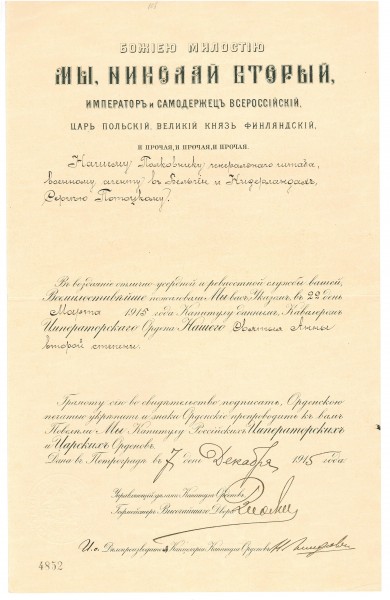 БОЖІЕЮ МИЛОСТІЮ
МЫ, НИКОЛАЙ ВТОРЫЙ,
ИМПЕРАТОРЪ и САМОДЕРЖЕЦЪ ВСЕРОССІЙСКІЙ,
ЦАРЬ ПОЛЬСКІЙ, ВЕЛИКІЙ КНЯЗЬ ФИНЛЯНДСКІЙ,
И ПРОЧАЯ, И ПРОЧАЯ, И ПРОЧАЯ.
Нашему Полковнику генеральнаго штаба,
военному агенту въ Бельгіи и Нидерландахъ,
Сергѣю Потоцкому.
Въ воздаяніе отлично-усердной и ревностной службы вашей,
Всемилостивѣйше пожаловали Мы васъ Указомъ, въ 22 день
Марта 1915 года Капитулу даннымъ, Кавалеромъ
Императорскаго Ордена Нашего Святыя Анны
второй степени.
Грамоту сію во свидѣтельство подписать, Орденскою
печатью укрѣпить и знаки Орденскіе препроводить къ вамъ
Повелѣли Мы Капитулу Россійскихъ Императорскихъ
и Царскихъ Орденовъ.
Дана въ Петроградѣ въ 7 день Декабря 1915 года
Управляющій дѣлами Капитула Орденовъ,
Гофмейстеръ Высочайшаго Двора
И.о. Дѣлопроизводителя Канцеляріи Капитула Орденовъ
4852